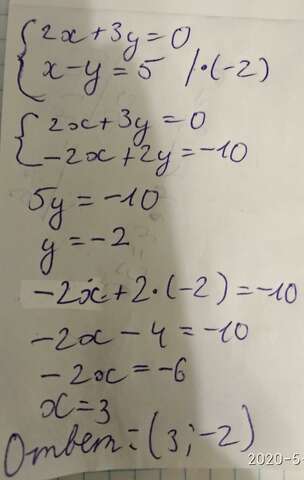 {2x+3y=0
{x-y=5 /·(-2)
{2x+3y=0
{-2x+2y=-10
5y=-10
y=-2
-2x+2·(-2)=-10
-2x-4=-10
-2x=-6
x=3
Ответ: (3;-2)
2020-5-